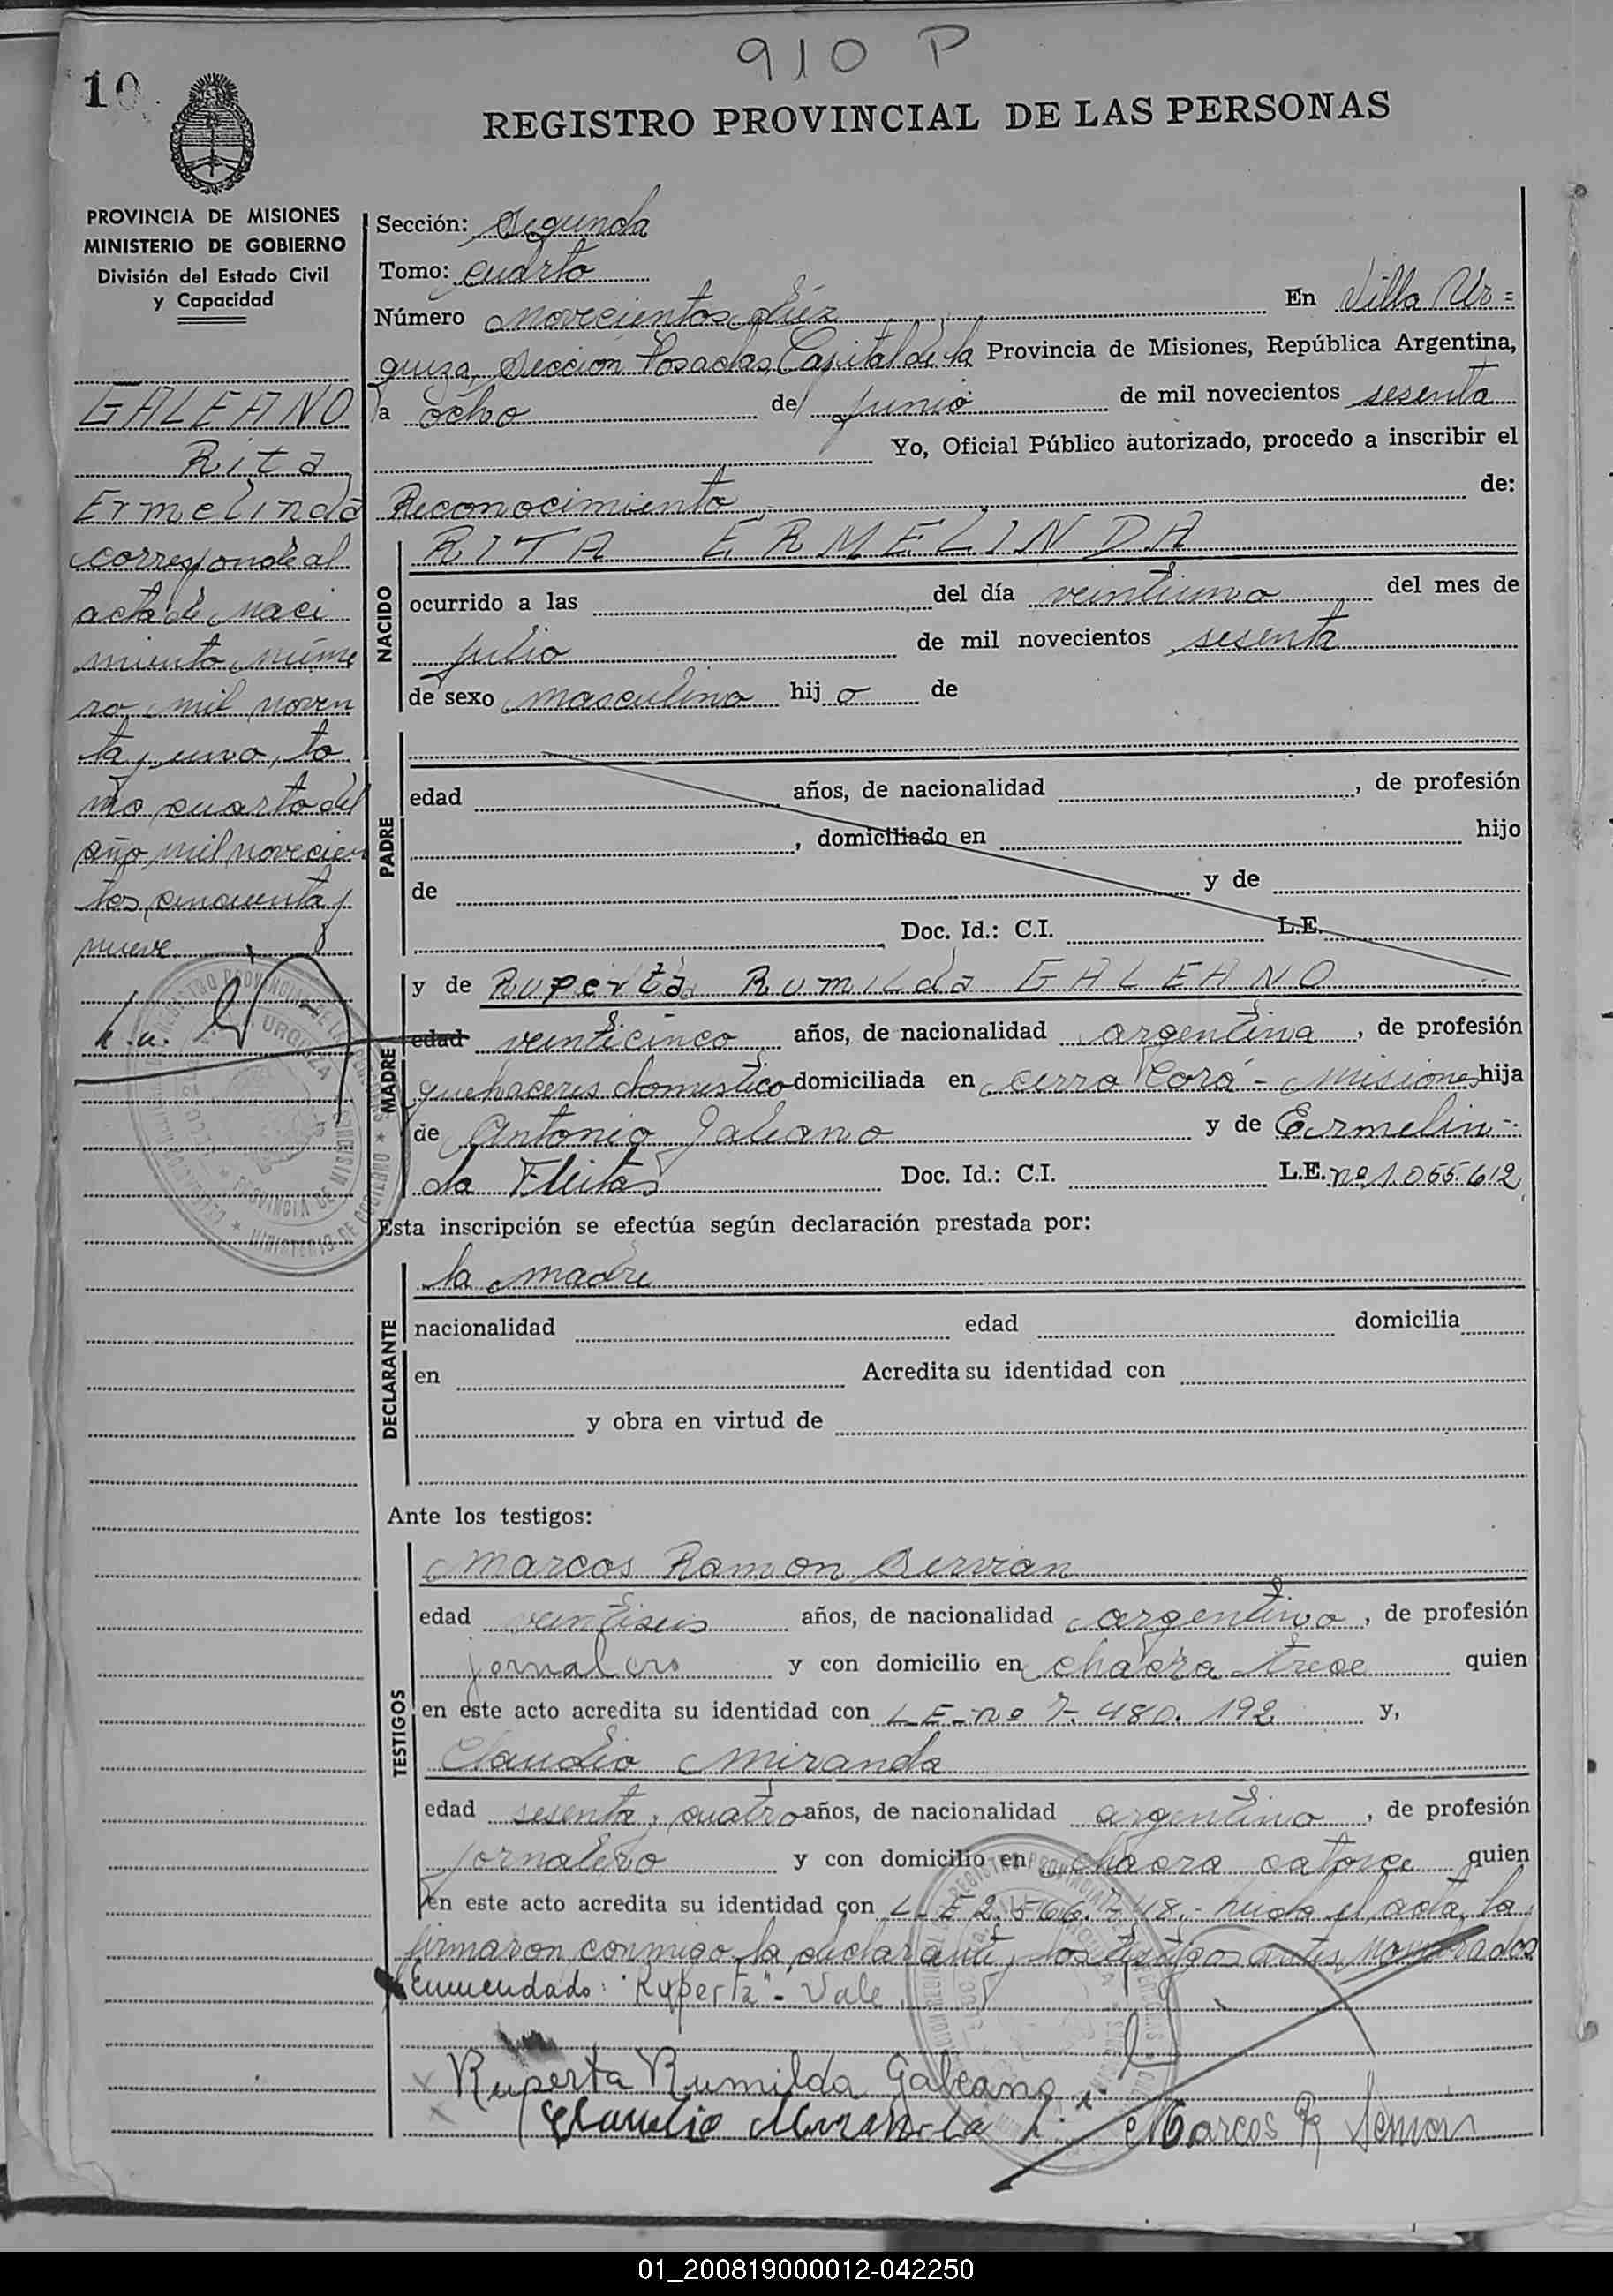 910 P
10
REGISTRO PROVINCIAL DE LAS PERSONAS
PROVINCIA DE MISIONES
MINISTERIO DE GOBIERNO
División del Estado Civil
y Capacidad
GALEANO
Rita
Ermelinda
corresponde al
acta de naci
miento núme
ro mil noven
ta y uno, to
mo cuarto del
año mil novecien
tos cincuenta y
nueve
Sección: Segunda
Tomo: cuarto
Número novecientos diéz En Villa Ur=
quiza, Sección Posadas, Capital de la Provincia de Misiones, República Argentina,
a ocho de junio de mil novecientos sesenta
Yo, Oficial Público autorizado, procedo a inscribir el
Reconocimiento de:
NACIDO
RITA ERMELINDA
ocurrido a las del día veintiuno del mes de
julio de mil novecientos sesenta
de sexo masculino hijo de
PADRE
edad años, de nacionalidad , de profesión
, domiciliado en hijo
de y de
Doc. Id.: C.I. L.E.
MADRE
y de Ruperta Rumilda GALEANO
edad veinticinco años, de nacionalidad argentina, de profesión
quehaceres domestico domiciliada en cerro Corá - Misiones hija
de Antonio Galeano y de Ermelin-
da Fleitas Doc. Id.: C.I. L.E. nº 1.055.612
Esta inscripción se efectúa según declaración prestada por:
DECLARANTE
la madre
nacionalidad edad domicilia
en Acredita su identidad con
y obra en virtud de
Ante los testigos:
TESTIGOS
Marcos Ramon Servian
edad veintiseis años, de nacionalidad argentino, de profesión
jornalero y con domicilio en chacra trece quien
en este acto acredita su identidad con L E - nº 7.480.192 y,
Claudio Miranda
edad sesenta y cuatro años, de nacionalidad argentino, de profesión
jornalero y con domicilio en chacra catorce quien
en este acto acredita su identidad con L E 2.566.748.- leida el acta, la
firmaron conmigo la declarante y los testigos antes nombrados
Enmendado: "Ruperta" - Vale
Ruperta Rumilda Galeano
Claudio Miranda Marcos R Servian
01_200819000012-042250